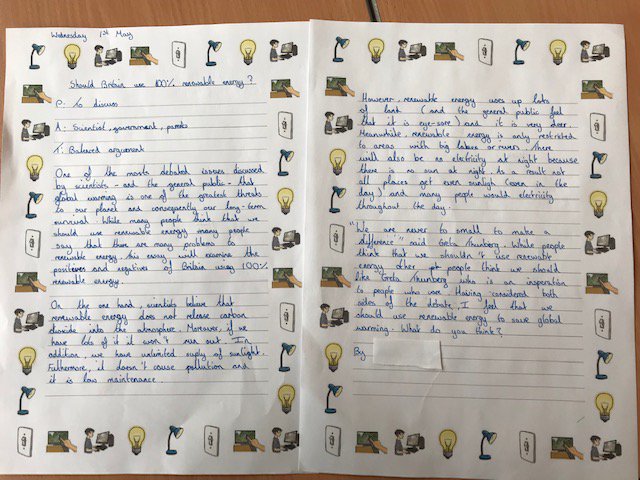 Wednesday 1st May
Should Britain use 100% renewable energy?
P: To discuss
A: Scientist, government, parents
T: Balanced argument
One of the most debated issues discussed
by scientists - and the general public - that
global warming is one of the greatest threats
to our planet and consequently our long-term
survival. While many people think that we
should use renewable energy many people
say that there are many problems to
renewable energy this essay will examine the
positives and negatives of Britain using 100%
renewable energy.
On the one hand, scientists believe that
renewable energy does not release carbon
dioxide into the atmosphere. Moreover, if we
have lots of it it won't run out. In
addition, we have unlimited suply of sunlight.
Futhermore, it doesn't cause pollution and
it is low maintenance.
However, renewable energy uses up lots
of land (and the general public feel
that it is eye-sore) and it is very dear.
Meanwhile, renewable energy is only restricted
to areas with big lakes or rivers. There
will also be no electricity at night because
there is no sun at night. As a result not
all places get even sunligh (even in the
day) and many people would electricity
throughout the day.
"We are never to small to make a
difference" said Greta Thunberg. While people
think that we shouldn't use renewable
energy other people think we should
like Greta Thunberg who is an insperation
to people who are. Having considered both
sides of the debate, I feel that we
should use renewable energy to save global
warming. What do you think?
By